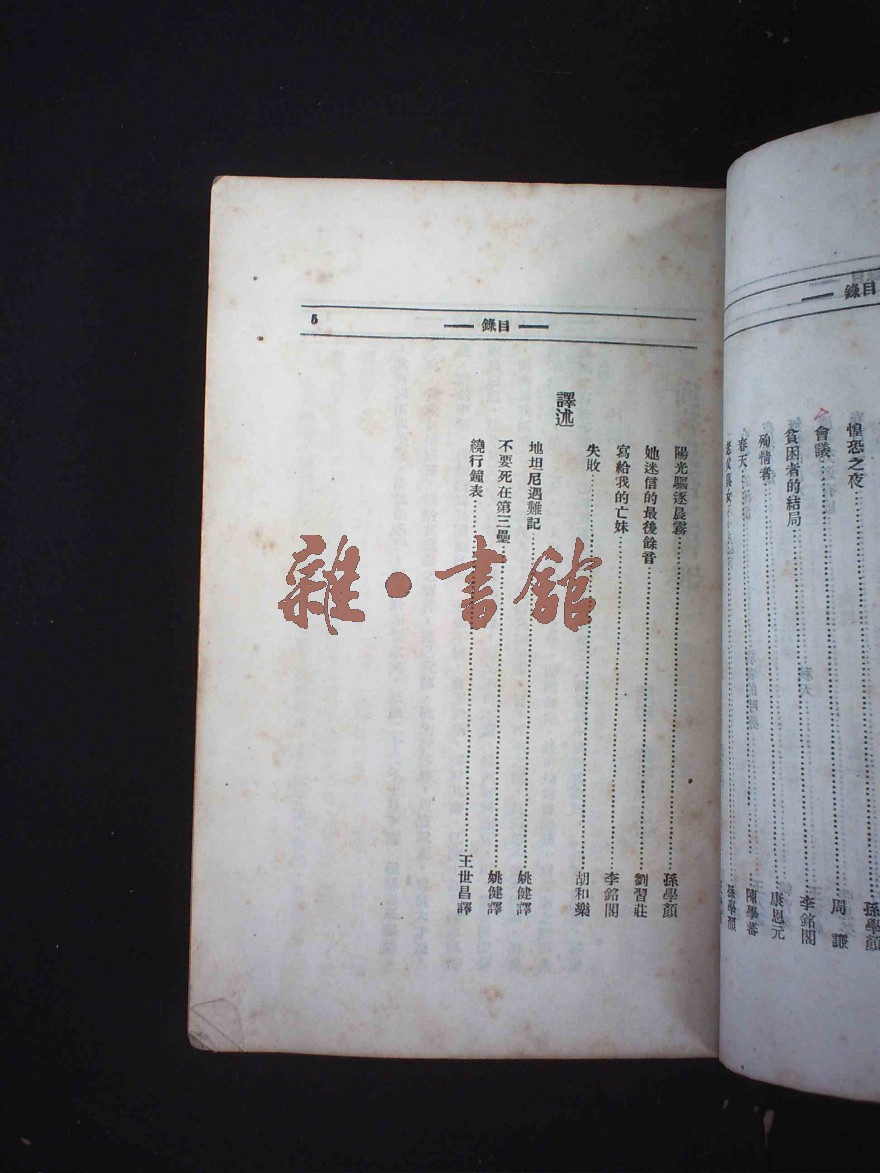 錄目
惶恐之夜 孫學顏
會議 周
貧困者的結局 李銘閣
殉情者 康恩元
春天 陳學蕃
孫學顏
5
錄目
陽光驅逐晨霧 孫學顏
她迷信的最後餘音 劉習莊
寫給我的亡妹 李銘閣
失敗 胡和樂
譯述
地坦尼遇難記 姚健譯
不要死在第三壘 姚健譯
繞行鐘表 王世昌譯
雜·書館